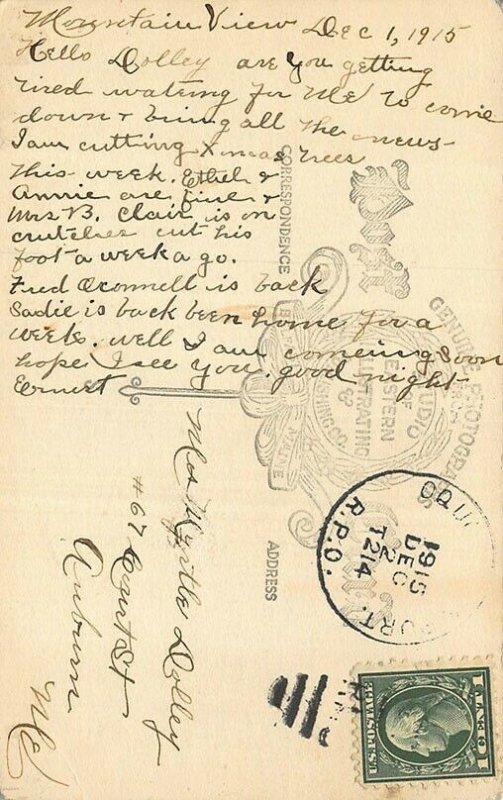 Mountain View Dec 1, 1915
Hello Dolley are you getting
tired wateing for me to come
down & bring all the news
I am cutting Xmas trees
this week. Ethel &
Annie are fine &
Mrs B. Clair is on
crutches cut his
foot a week a go.
Fred Oconnell is back
Sadie is back been home for a
week. well I am comeing soon
hope I see you. good night
Ernest
CORRESPONDENCE
GENUINE PHOTOGRAPHS
FROM
STUDIO
OF
EASTERN
ILLUSTRATING
&
PUBLISHING CO.
BELFAST
MAINE
ADDRESS
Mrs Myrtle Dolley
# 67 Court St
Auburn
Me
PORT.
1915
DEC
2
T214
R.P.O.
U.S. POSTAGE
1 CENT 1